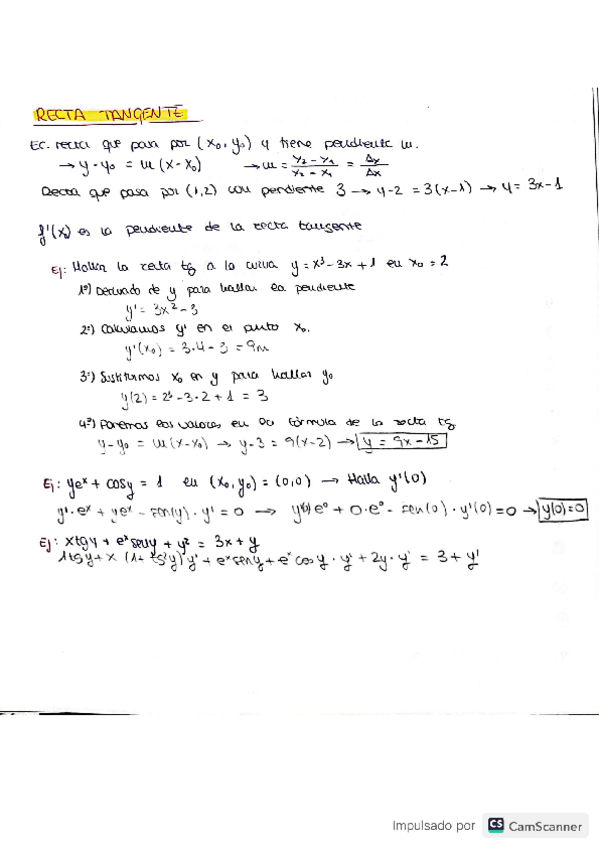 RECTA TANGENTE
EC. recta que pasa por (x₀, y₀) y tiene pendiente m.
→ y - y₀ = m (x - x₀) → m = (y₂ - y₁)/(x₂ - x₁) = Δy/Δx
Recta que pasa por (1,2) con pendiente 3 → y-2 = 3(x-1) → y = 3x-1
f'(x₀) es la pendiente de la recta tangente
Ej: Hallar la recta tg a la curva y = x³ - 3x + 1 en x₀ = 2
1º) Derivada de y para hallar la pendiente
y' = 3x² - 3
2º) Calculamos y' en el punto x₀.
y'(x₀) = 3·4 - 3 = 9m
3º) Sustituimos x₀ en y para hallar y₀
y(2) = 2³ - 3·2 + 1 = 3
4º) Ponemos los valores en la fórmula de la recta tg
y - y₀ = m(x - x₀) → y-3 = 9(x-2) → y = 9x - 15
Ej: yeˣ + cosy = 1 en (x₀, y₀) = (0,0) → Halla y'(0)
y'·eˣ + yeˣ - sen(y)·y' = 0 → y'(0)e⁰ + 0·e⁰ - sen(0)·y'(0) = 0 → y'(0) = 0
Ej: xtgy + eˣseny + y² = 3x + y
1tgy + x (1 + tg²y) y' + eˣseny + eˣcosy·y' + 2y·y' = 3 + y'
Impulsado por CS CamScanner